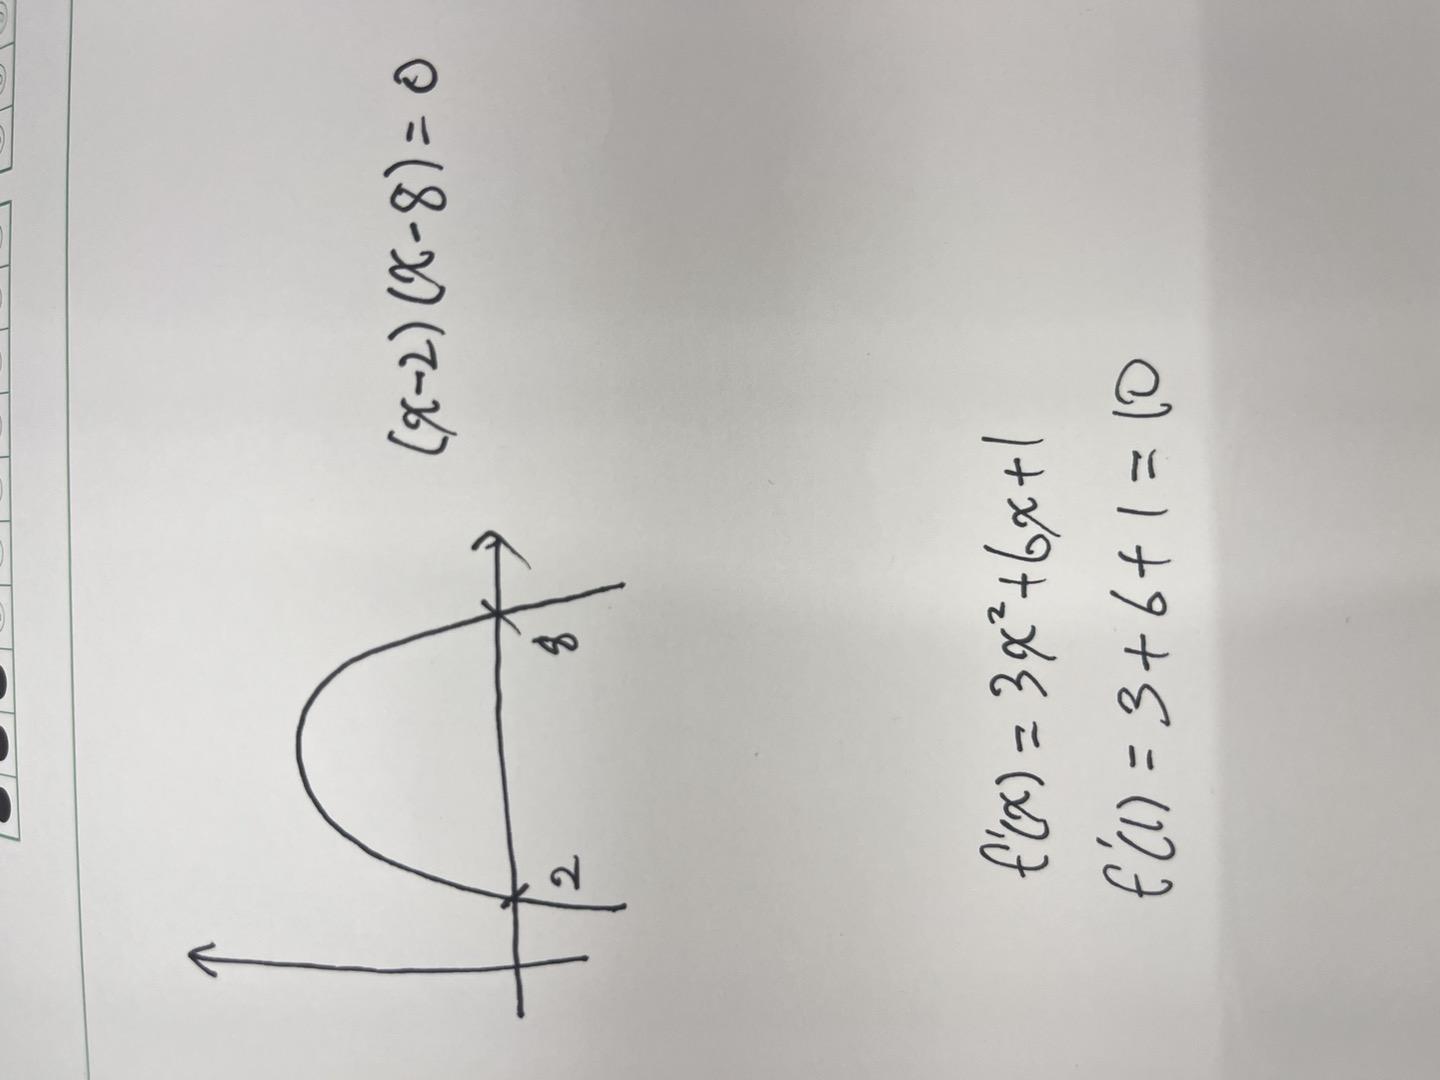 (x-2)(x-8)=0
2 8
f'(x) = 3x²+6x+1
f'(1) = 3+6+1=10